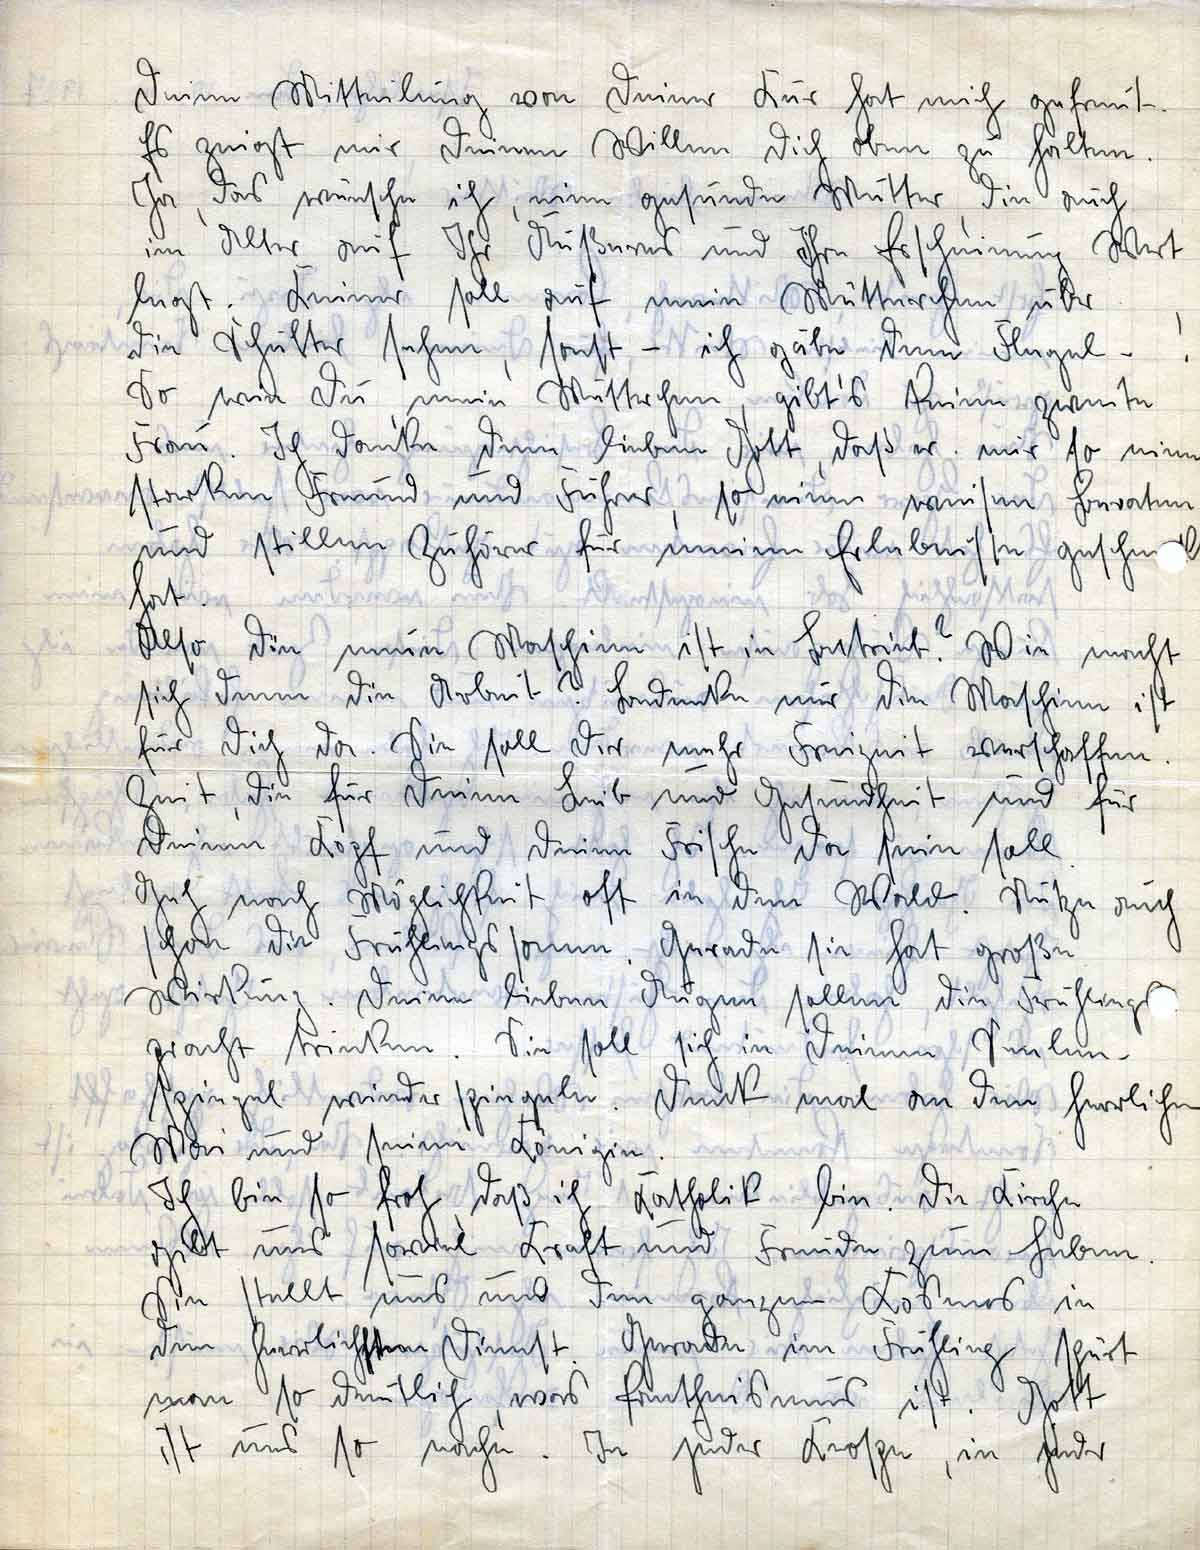 Deine Mitteilung von Deiner Kur hat mich gefreut.
Es zeigt mir Deinen Willen Dich oben zu halten.
Ja, das wünsche ich, eine gesunde Mutter, die auch
im Alter auf Ihr Äußeres und Ihre Erscheinung Wert
legt. Keiner soll auf mein Mütterchen über
die Schulter sehen, sonst – ich gäbe dem Flegel – !
So wie Du mein Mütterchen, gibt's keine zweite
Frau. Ich danke dem lieben Gott, daß er mir so einen
starken Freund und Führer, so einen weisen Berater
und stillen Zuhörer für meine Erlebnisse geschenkt
hat.
Also die neue Maschine ist in Betrieb? Wie macht
sich denn die Arbeit? Bedenke nur die Maschine ist
für Dich da. Sie soll Dir mehr Freizeit verschaffen.
Zeit, die für Deinen Leib und Gesundheit und für
Deinen Kopf und Deine Frische da sein soll.
Geh nach Möglichkeit oft in den Wald. Nütze auch
schon die Frühlingssonne. Gerade sie hat große
Wirkung. Deine lieben Augen sollen die Frühlings
pracht trinken. Sie soll sich in Deinem Seelen-
spiegel wiederspiegeln. Denk mal an den herrlichen
Mai und seine Königin.
Ich bin so froh, daß ich Katholik bin. Die Kirche
gibt uns soviel Kraft und Freude zum Leben.
Sie stellt uns und den ganzen Kosmos in
den herrlichsten Dienst. Gerade im Frühling spürt
man so deutlich, was Pantheismus ist. Gott
ist uns so nahe. In jeder Knospe, in jeder